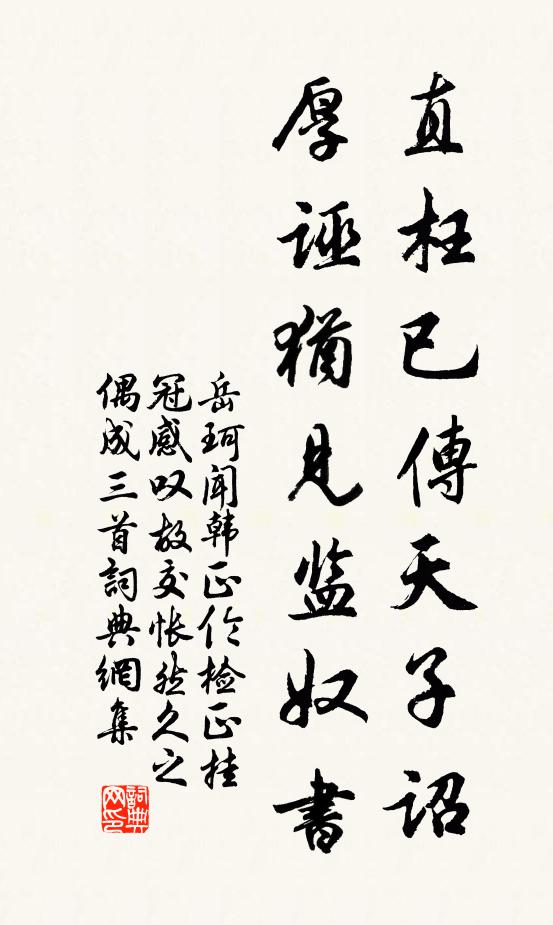 直枉已傳天子詔
厚誣猶見监奴書
岳珂闻韩正伦检正挂
冠感叹故交怅然久之
偶成三首詞典網集
詞典
网印